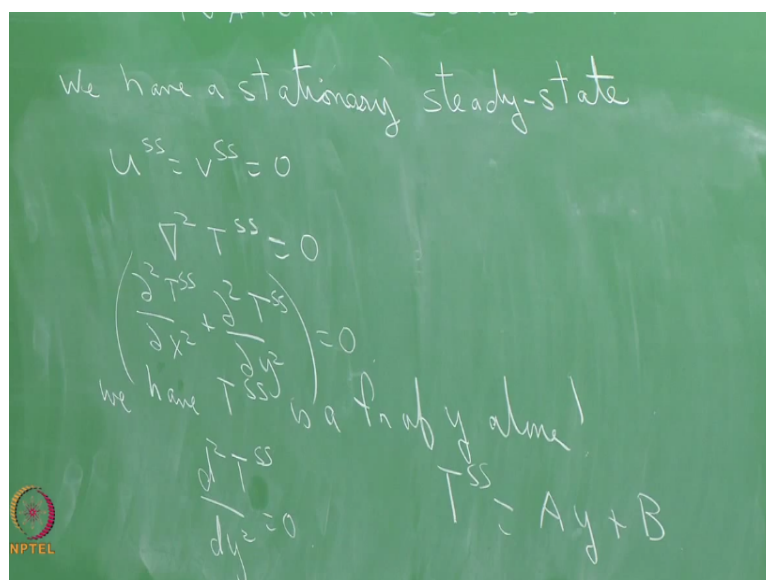 We have a stationary steady-state
u^SS = v^SS = 0
∇² T^SS = 0
(∂² T^SS / ∂x² + ∂² T^SS / ∂y²) = 0
we have T^SS is a fn of y alone!
d² T^SS / dy² = 0    T^SS = Ay + B
NPTEL